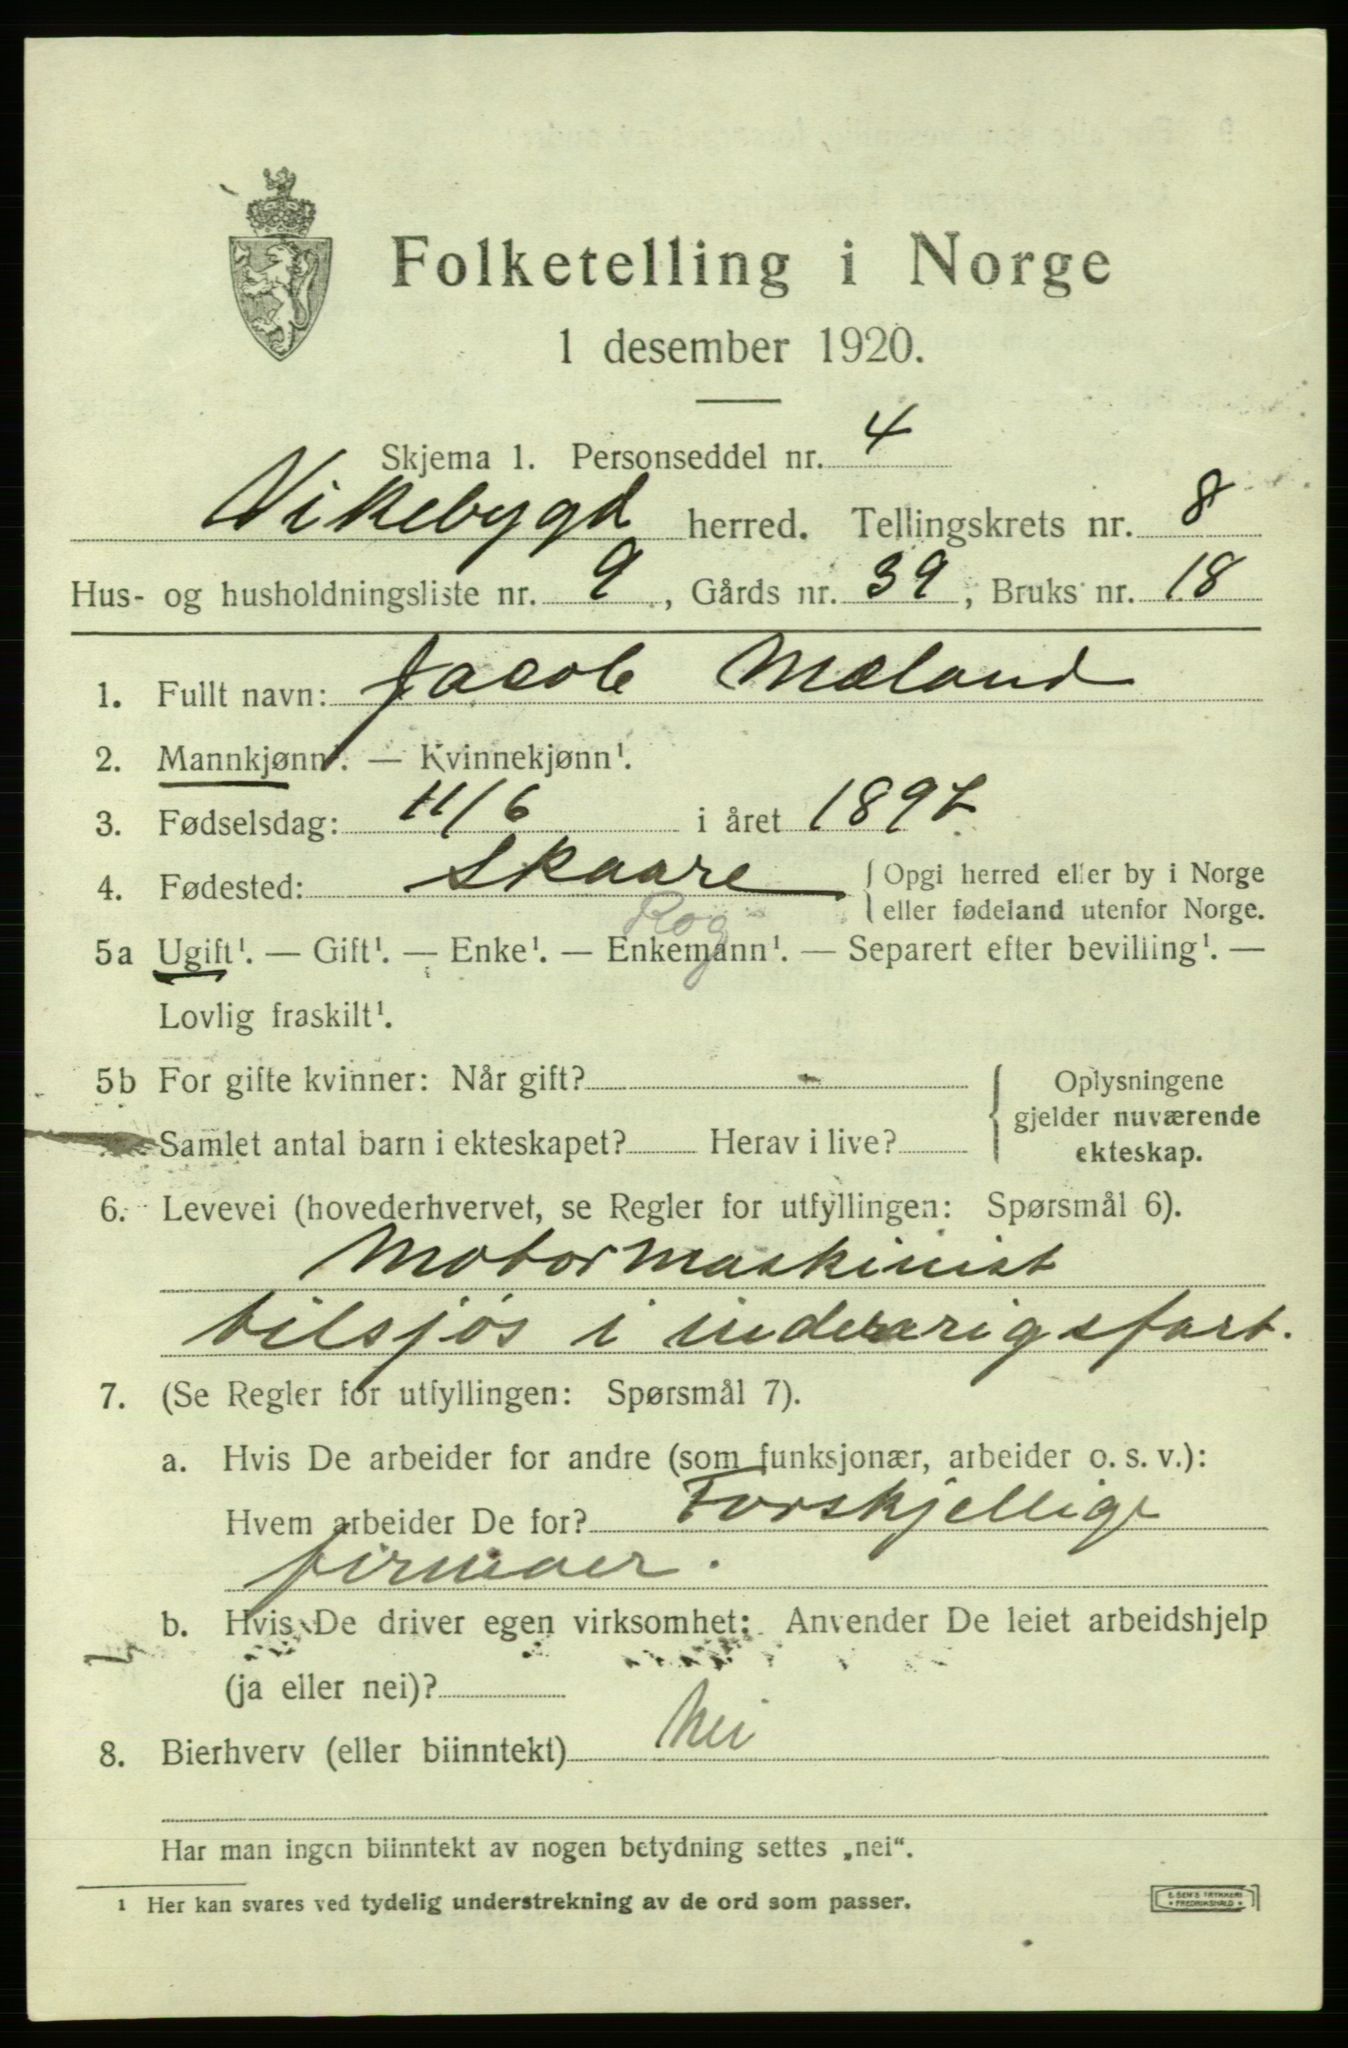 Folketelling i Norge
1 desember 1920.
Skjema 1. Personseddel nr. 4
Vikebygd herred. Tellingskrets nr. 8
Hus- og husholdningsliste nr. 9, Gårds nr. 39, Bruks nr. 18
1. Fullt navn: Jacob Mæland
2. Mannkjønn¹. — Kvinnekjønn¹.
3. Fødselsdag: 11/6 i året 1897.
4. Fødested: Skaare { Opgi herred eller by i Norge
eller fødeland utenfor Norge.
Rog
5a Ugift¹. — Gift¹. — Enke¹. — Enkemann¹. — Separert efter bevilling¹. —
Lovlig fraskilt¹.
5b For gifte kvinner: Når gift? { Oplysningene
gjelder nuværende
Samlet antal barn i ekteskapet? Herav i live?
ekteskap.
6. Levevei (hovederhvervet, se Regler for utfyllingen: Spørsmål 6).
Motormaskinist
tilsjøs i indenrigsfart.
7. (Se Regler for utfyllingen: Spørsmål 7).
a. Hvis De arbeider for andre (som funksjonær, arbeider o. s. v.):
Hvem arbeider De for? Forskjellige
firmaer.
b. Hvis De driver egen virksomhet: Anvender De leiet arbeidshjelp
(ja eller nei)?
8. Bierhverv (eller biinntekt) Nei
Har man ingen biinntekt av nogen betydning settes „nei“.
¹ Her kan svares ved tydelig understrekning av de ord som passer.